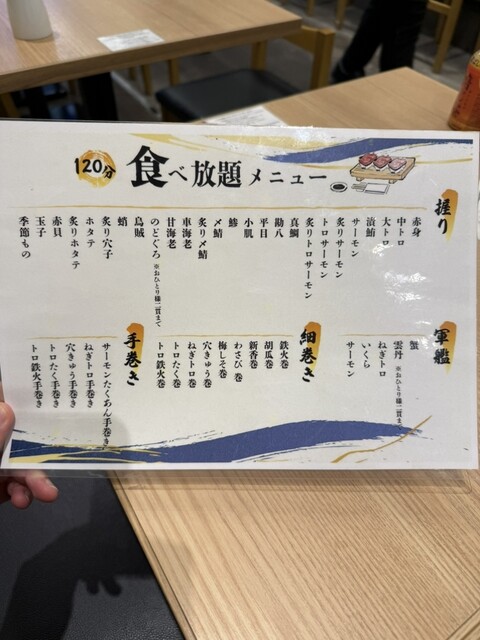 120分 食べ放題メニュー
握り
赤身
中トロ
大トロ
漬鮪
サーモン
炙りサーモン
トロサーモン
炙りトロサーモン
真鯛
勘八
平目
小肌
鯵
〆鯖
炙り〆鯖
車海老
甘海老
のどぐろ ※おひとり様二貫まで
烏賊
蛸
炙り穴子
ホタテ
炙りホタテ
赤貝
玉子
季節もの
軍艦
蟹
雲丹 ※おひとり様二貫まで
ねぎトロ
いくら
サーモン
細巻き
鉄火巻
胡瓜巻
新香巻
わさび巻
梅しそ巻
穴きゅう巻
ねぎトロ巻
トロたく巻
トロ鉄火巻
手巻き
サーモンたくあん手巻き
ねぎトロ手巻き
穴きゅう手巻き
トロたく手巻き
トロ鉄火手巻き